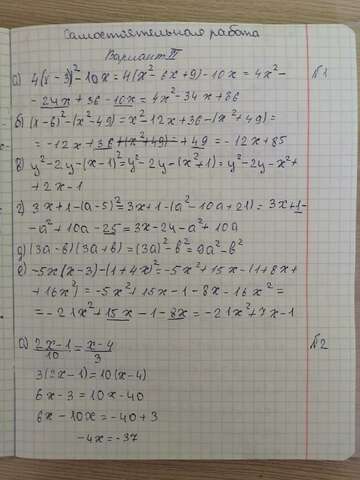 Самостоятельная работа
Вариант II
а) 4(x-3)²-10x=4(x²-6x+9)-10x=4x²- №1
-24x+36-10x=4x²-34x+36
б) (x-6)²-(x²-49)=x²-12x+36-(x²+49)=
=-12x+36+(x²+49)=+49=-12x+85
в) y²-2y-(x-1)²=y²-2y-(x²+1)=y²-2y-x²+
+2x-1
г) 3x+1-(a-5)²=3x+1-(a²-10a+21)=3x+1-
-a²+10a-25=3x-24-a²+10a
д) (3a-b)(3a+b)=(3a)²-b²=9a²-b²
е) -5x(x-3)-(1+4x)²=-5x²+15x-(1+8x+
+16x²)=-5x²+15x-1-8x-16x²=
=-21x²+15x-1-8x=-21x²+7x-1
а) (2x-1)/10=(x-4)/3 №2
3(2x-1)=10(x-4)
6x-3=10x-40
6x-10x=-40+3
-4x=-37